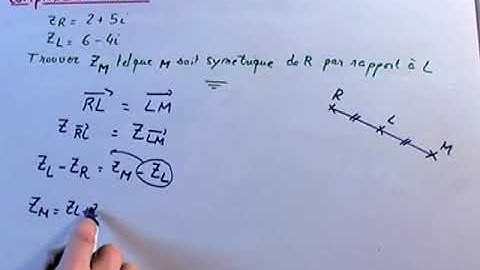 Z_R = 2 + 5i
Z_L = 6 - 4i
Trouver Z_M tel que M soit symetrique de R par rapport à L
→RL = →LM
Z_→RL = Z_→LM
Z_L - Z_R = Z_M - Z_L
Z_M = Z_L +
R
L
M